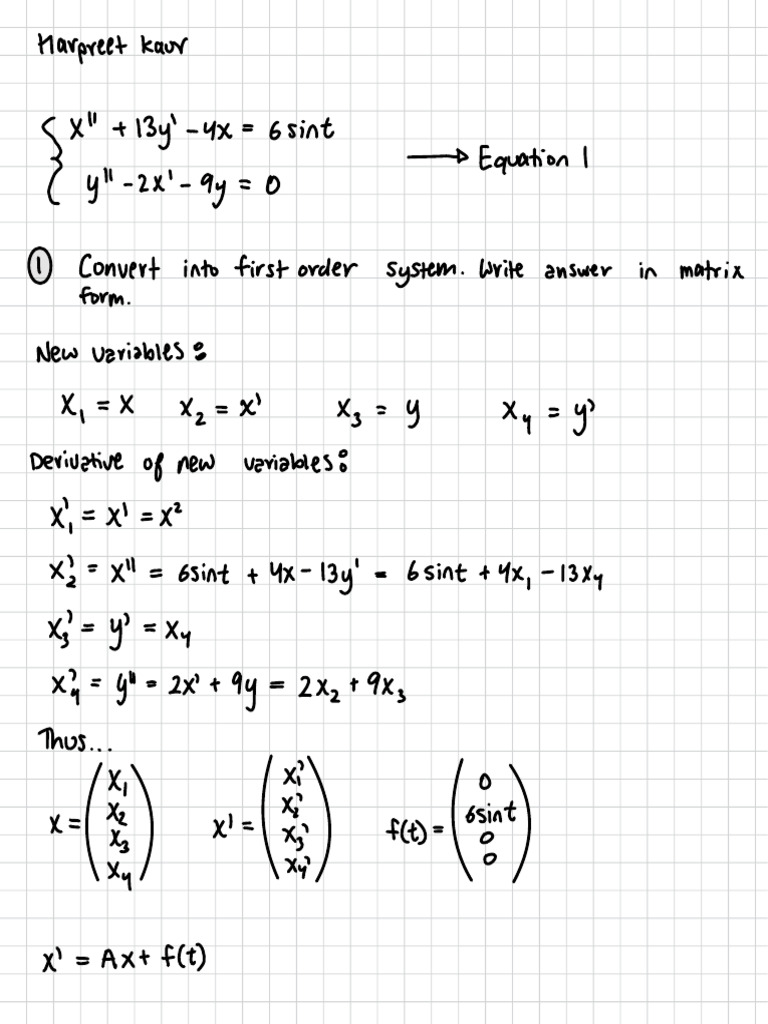 Harpreet Kaur
x'' + 13y' - 4x = 6 sint
y'' - 2x' - 9y = 0
→ Equation 1
① Convert into first order system. Write answer in matrix
form.
New variables:
x₁ = x x₂ = x' x₃ = y x₄ = y'
Derivative of new variables:
x₁' = x' = x²
x₂' = x'' = 6sint + 4x - 13y' = 6 sint + 4x₁ - 13x₄
x₃' = y' = x₄
x₄' = y'' = 2x' + 9y = 2x₂ + 9x₃
Thus...
x = (x₁ x₂ x₃ x₄) x' = (x₁' x₂' x₃' x₄') f(t) = (0 6sint 0 0)
x' = Ax + f(t)